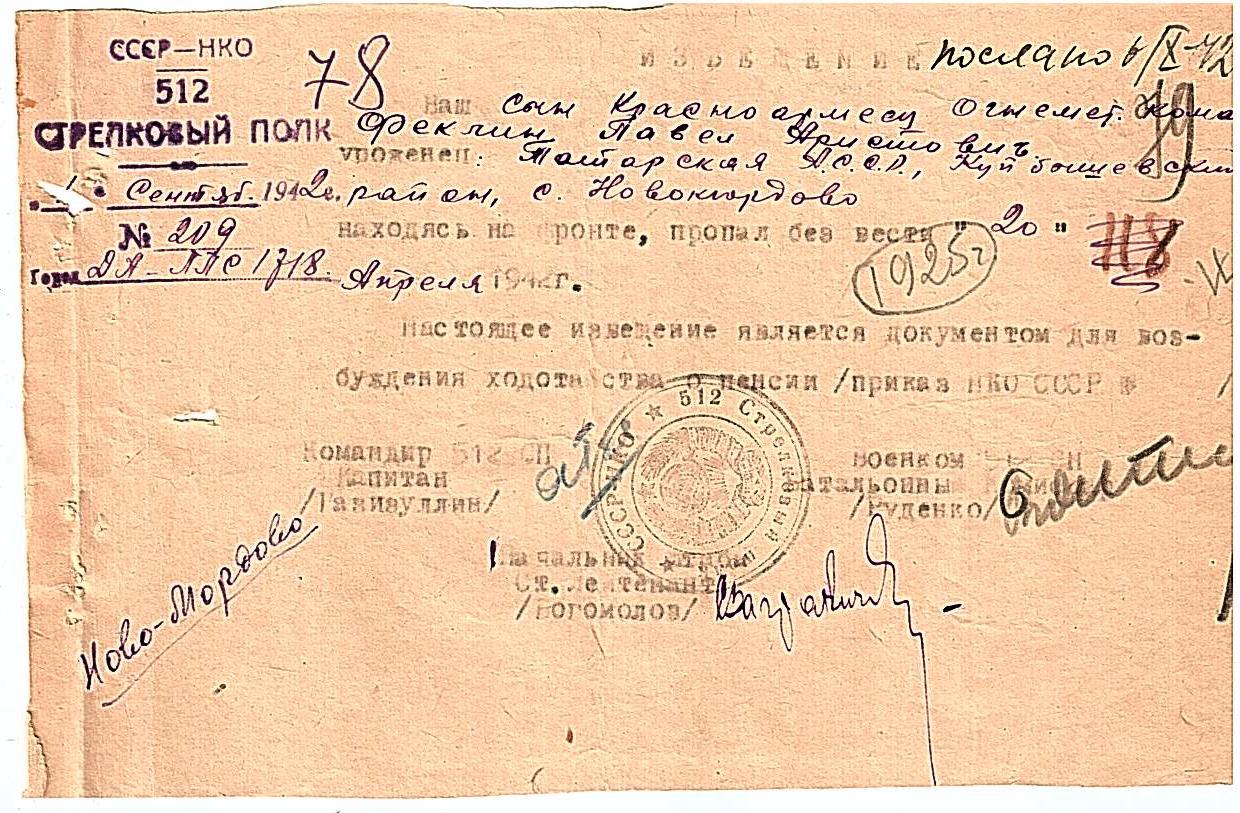 СССР—НКО
512
СТРЕЛКОВЫЙ ПОЛК
"1" Сентяб. 1942г.
№ 209
Город ДА-ППС 1718.
78
ИЗВЕЩЕНИЕ
послано 6/X-42
79
Наш сын Красноармеец Огнемет.
Феклин Павел
уроженец: Татарская А.С.С.Р., Куйбышевский
район, с. Новомордово
находясь на фронте, пропал без вести "20"
Апреля 1942г.
118
1925г
Настоящее извещение является документом для воз-
буждения ходотайства о пенсии /приказ НКО СССР №
Командир 512 СП
Капитан
/Гавиауллин/
Военком СП
Батальонный
/Руденко/
СССР НКО ★ 512 Стрелковый
Начальник штаба
Ст. Лейтенант
/Богомолов/
Ново-Мордово